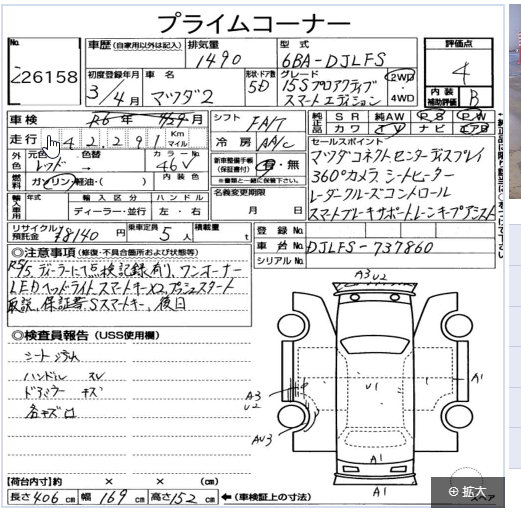 プライムコーナー
No. 26158
車歴 (自家用以外は記入) 排気量 1490 型式 6BA-DJLFS 評価点 4
初度登録年月 3/4月 車名 マツダ2 形状・ドア数 5D グレード 15Sプロアクティブ スマートエディション 2WD ・ 4WD 内装補助評価 B
車検 R6年 4月 シフト FA/T 純正品 SR 純AW PS PW
走行 42,291 Km マイル 冷房 AA/C カワ TV ナビ エアB
外色 元色 レッド → 色替 カラーNo. 46V 新車整備手帳(保証書付) 有・無 セールスポイント
燃料 ガソリン・軽油・( ) 内装色 マツダコネクトセンターディスプレイ
360°カメラ シートヒーター
輸入車用 年式 輸入区分 ハンドル 名義変更期限 レーダークルーズコントロール
ディーラー・並行 左・右 月 日 スマートブレーキサポートレーンキープアシスト
リサイクル預託金 8140円 乗車定員 5人 積載量 t 登録No.
車台No. DJLFS-737860
シリアルNo.
◎注意事項 (修復・不具合箇所および状態等)
R5/5 ディーラーにて点検記録有り、ワンオーナー
LEDヘッドライト スマートキーX2 プッシュスタート
取説、保証書、Sスマートキー、後日
◎検査員報告 (USS使用欄)
シート シワ
ハンドル スレ
ドアミラー キズ
各キズ
A3
U2
A3
U2
U1
A1
AU3
A1
A1
スペア
【荷台内寸】約 × × (cm)
長さ 406 cm 幅 169 cm 高さ 152 cm ←(車検証上の寸法)
拡大